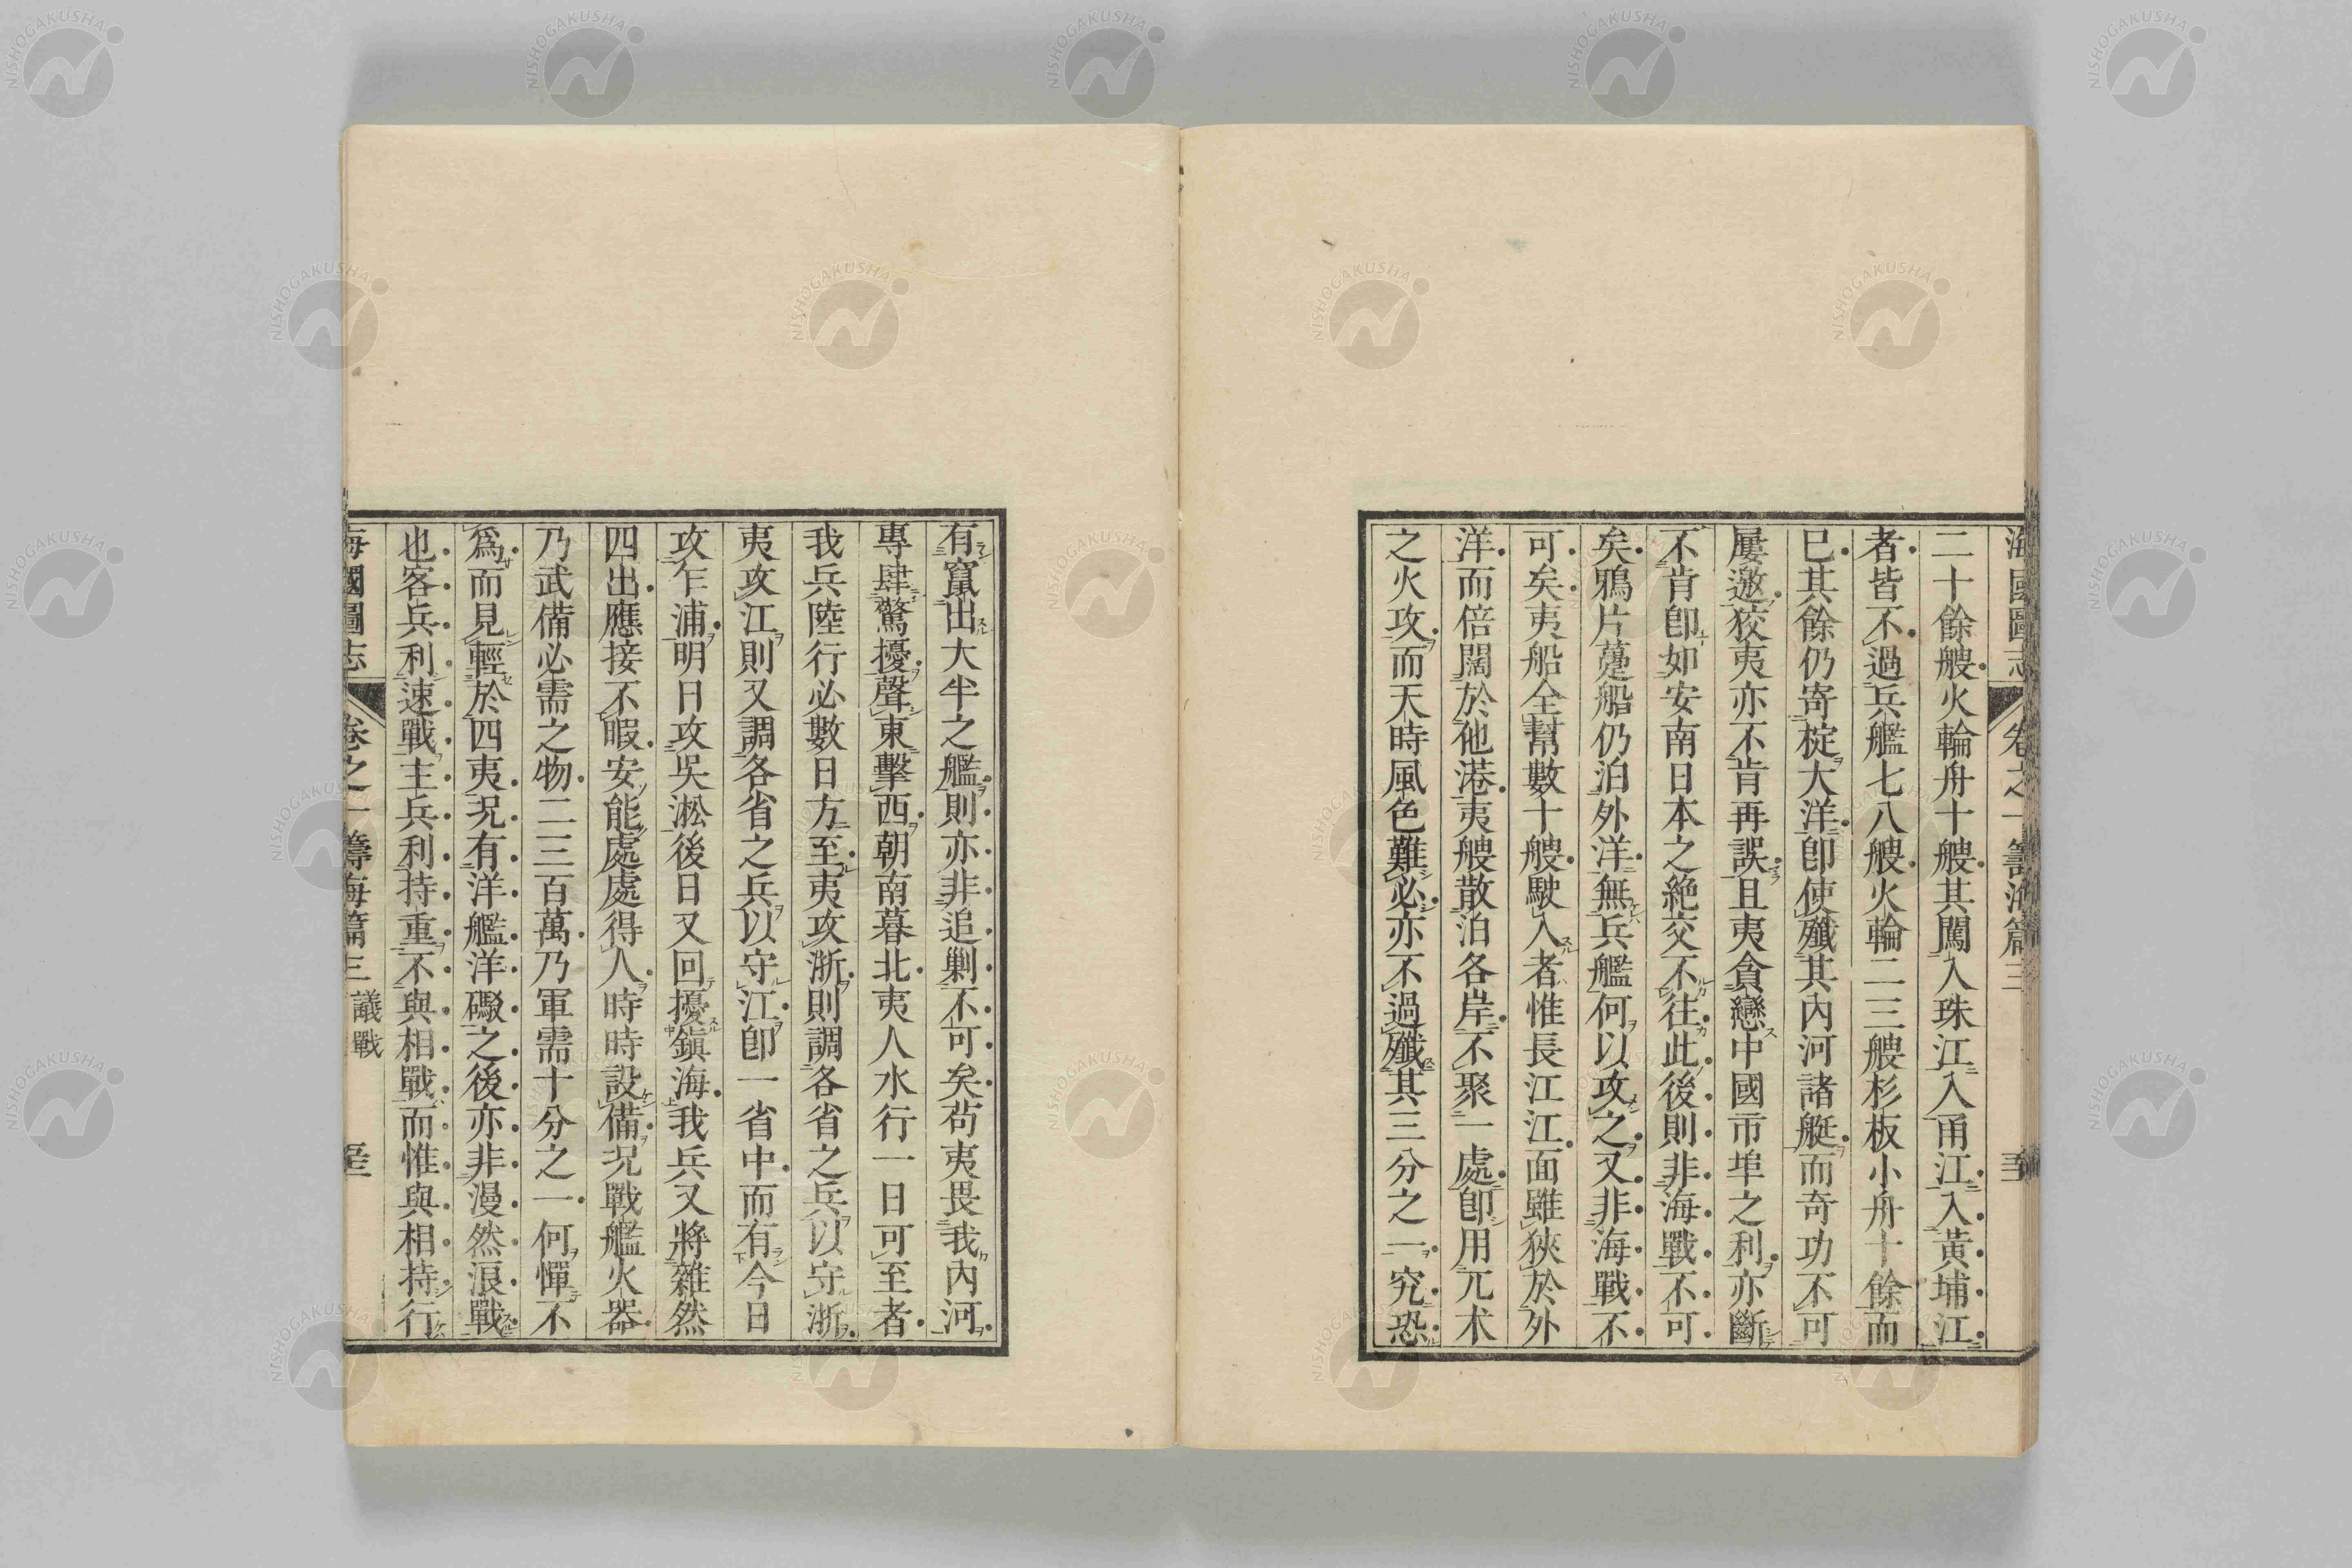 海國圖志 卷之一 籌海篇三
二十餘艘火輪舟十艘其闖入珠江入甬江入黃埔江
者皆不過兵艦七八艘火輪二三艘杉板小舟十餘而
已其餘仍寄椗大洋卽使殲其內河諸艇而奇功不可
屢邀狡夷亦不肯再誤且夷貪戀中國市埠之利亦斷
不肯卽如安南日本之絶交不往此後則非海戰不可
矣鴉片躉船仍泊外洋無兵艦何以攻之又非海戰不
可矣夷船全幫數十艘駛入者惟長江江面雖狹於外
洋而倍闊於他港夷艘散泊各岸不聚一處卽用兀术
之火攻而天時風色難必亦不過殲其三分之一究恐
有竄出大半之艦則亦非追剿不可矣茍夷畏我內河
專肆驚擾聲東擊西朝南暮北夷人水行一日可至者
我兵陸行必數日方至夷攻浙則調各省之兵以守浙
夷攻江則又調各省之兵以守江卽一省中而有今日
攻乍浦明日攻吳淞後日又回擾鎭海我兵又將雜然
四出應接不暇安能處處得人時時設備況戰艦火器
乃武備必需之物二三百萬乃軍需十分之一何憚不
爲而見輕於四夷況有洋艦洋礮之後亦非漫然浪戰
也客兵利速戰主兵利持重不與相戰而惟與相持行
海國圖志 卷之一 籌海篇三 議戰
NISHOGAKUSHA